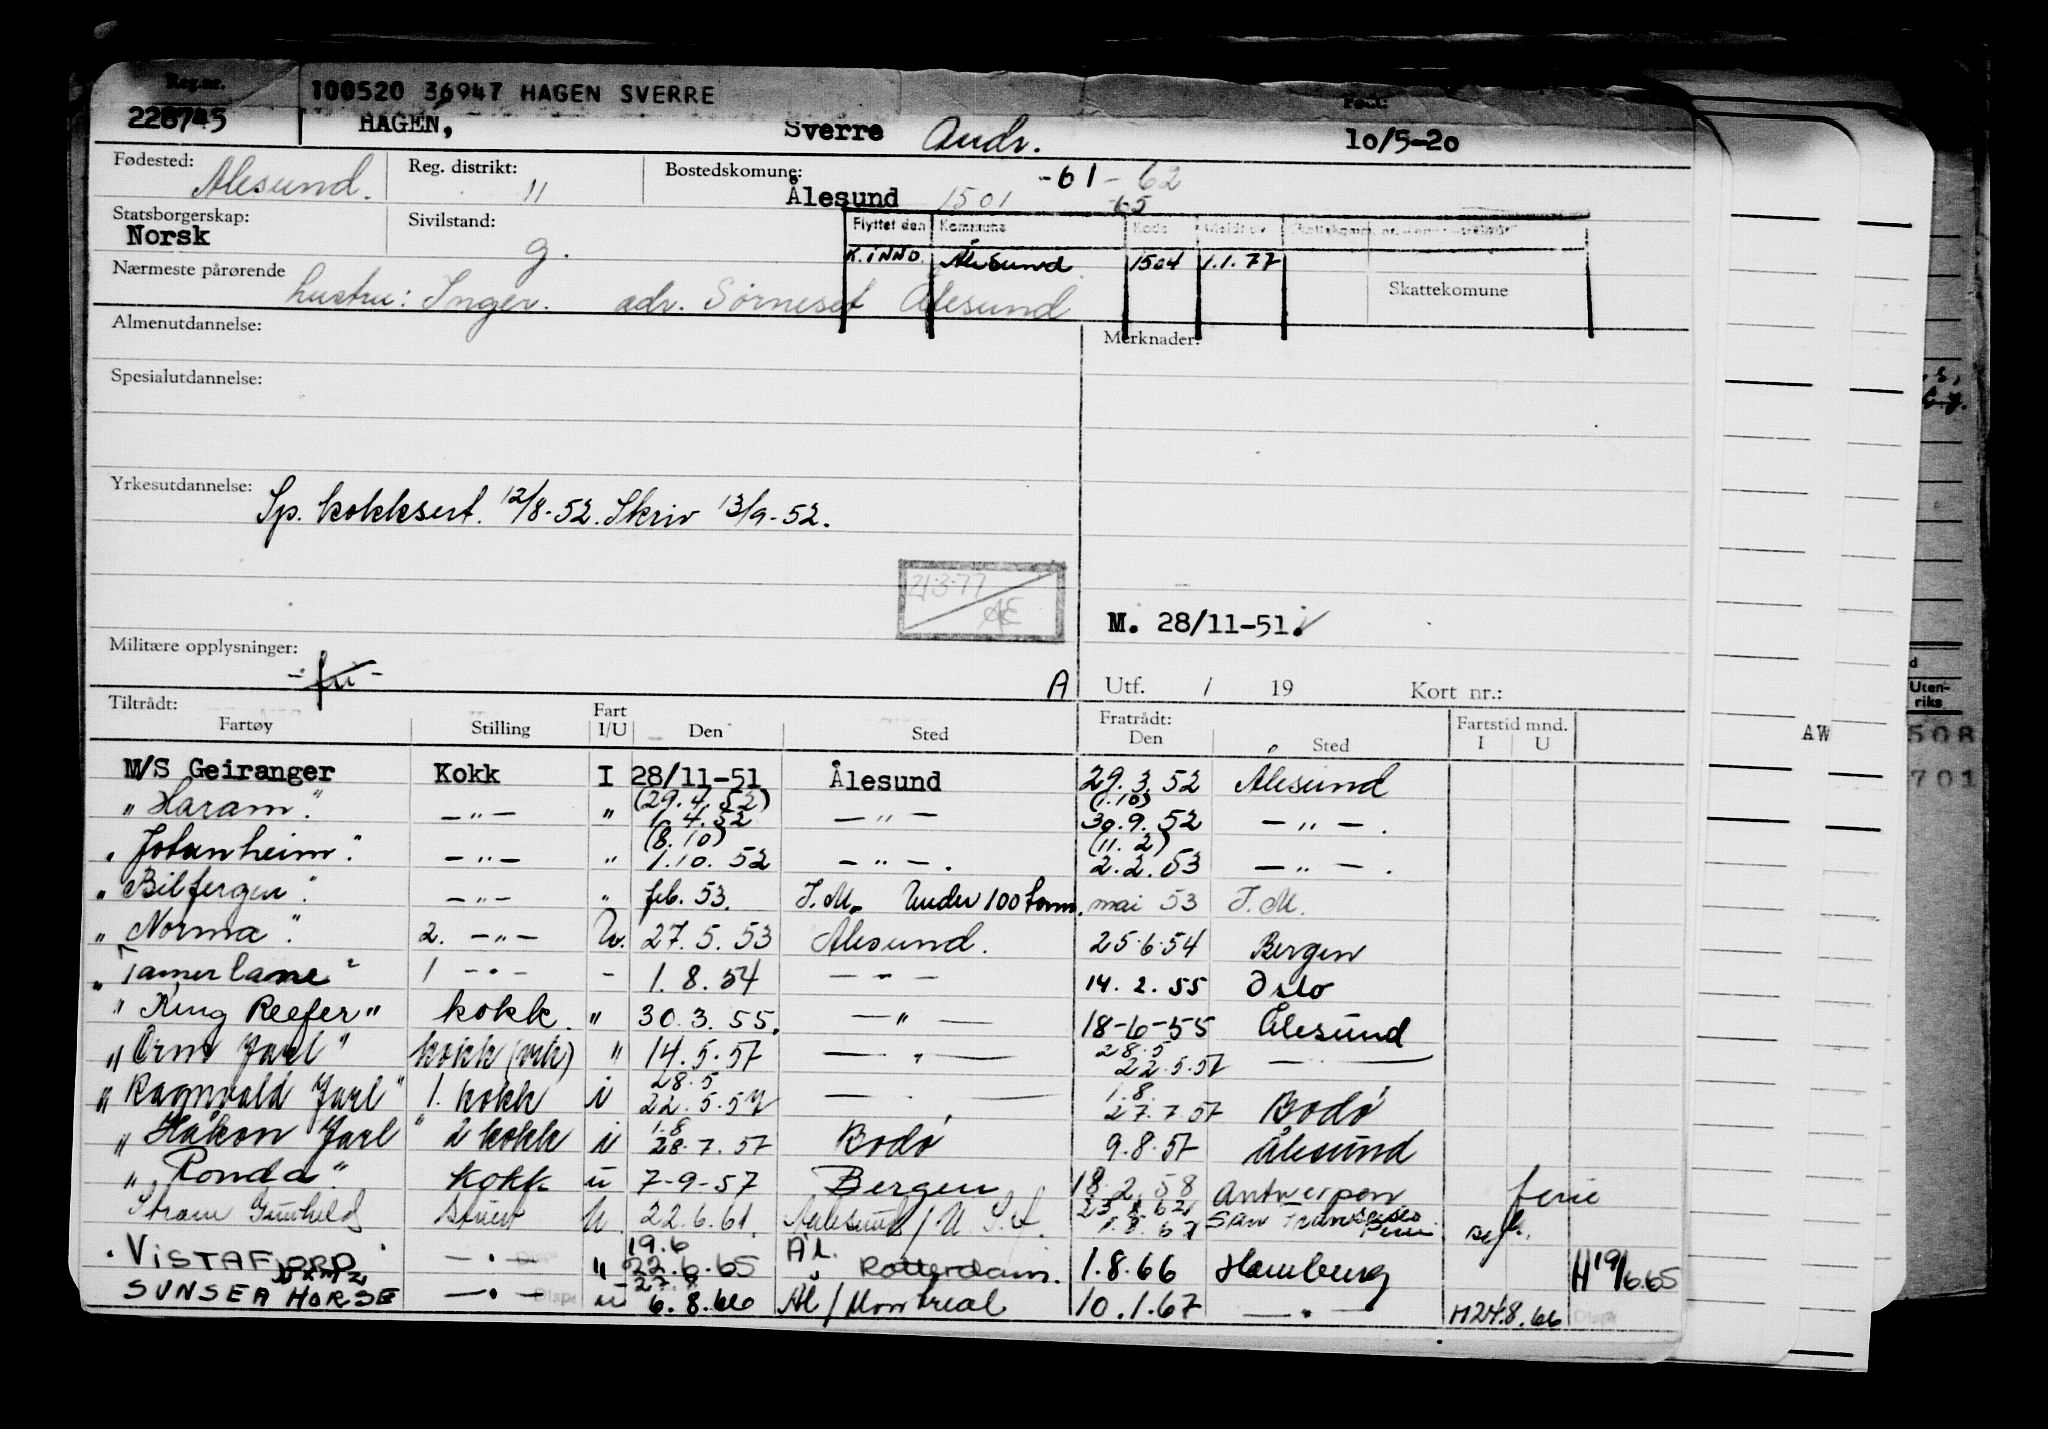 Reg.nr. 100520 36947 HAGEN SVERRE Født:
228745 HAGEN, Sverre Andr. 10/5-20
Fødested: Ålesund. Reg. distrikt: 11 Bostedskomune: Ålesund 1501 -61-62
-65
Statsborgerskap: Norsk Sivilstand: g.
Flyttet den Kommune Kode Meldt av
K.INND. Ålesund 1504 1.1.77
Nærmeste pårørende hustru: Inger. adr. Sørneset Ålesund Skattekomune
Almenutdannelse: Merknader:
Spesialutdannelse:
Yrkesutdannelse: Sp. kokksert. 12/8-52. Skriv 13/9-52.
21.3.77
M. 28/11-51.
Militære opplysninger: -fri-
A Utf. / 19 Kort nr.:
Tiltrådt: Fratrådt: Fartstid mnd.
Fartøy Stilling Fart I/U Den Sted Den Sted I U
M/S Geiranger Kokk I 28/11-51 Ålesund 29.3.52 Ålesund
" Haram " — " — " (29.4.52) 1.4.52 — " — (1.10) 30.9.52 — " — .
" Jotunheim " — " — " (8.10) 1.10.52 — " — . (11.2) 2.2.53 — " — .
" Bilfergen " — " — " feb. 53. I.M. Under 100 tonn. mai 53 I.M.
" Norma " 2. — " — U. 27.5.53 Ålesund. 25.6.54 Bergen
" Tamerlane " 1 — " — - 1.8.54 — " — 14.2.55 Oslo
" King Reefer " kokk. " 30.3.55. — " — 18-6-55 Ålesund
" Orm Jarl " kokk (vik) " 14.5.57 — " — 28.5 22.5.57 — " —
" Ragnvald Jarl " 1. kokk i 28.5 22.5.57 — " — 1.8. 27.7.57 Bodø
" Håkon Jarl " 2 kokk i 1.8 28.7.57 Bodø 9.8.57 Ålesund
" Ronda " kokk u 7-9-57 Bergen 18.2.58 Antwerpen ferie
Gunhild stuert U 22.6.61. Aalesund / U.S.A. San Fransisco
" VISTAFJORD — " — " 19.6 22.6.65 Ål. Rotterdam. 1.8.66 Hamburg H 19/6.65
SUNSEA HORSE — " — u 27.8 6.8.66 Ål / Montreal 10.1.67 — " — H24.8.66
AW
Utenriks
508
701